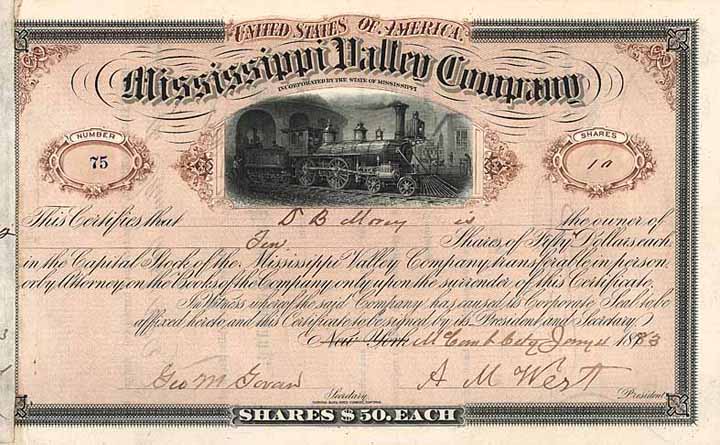 UNITED STATES OF AMERICA
Mississippi Valley Company
INCORPORATED BY THE STATE OF MISSISSIPPI
NUMBER
75
SHARES
10
This Certifies that D B Morey is the owner of
Ten Shares of Fifty Dollars each
in the Capital Stock of the Mississippi Valley Company, transferable in person
or by Attorney, on the Books of the Company only upon the surrender of this Certificate.
In Witness whereof the said Company has caused its Corporate Seal to be
affixed hereto, and this Certificate to be signed by its President and Secretary.
New York McComb City Jany 4 1883
Geo M Govan Secretary. A M West President
SHARES $50. EACH